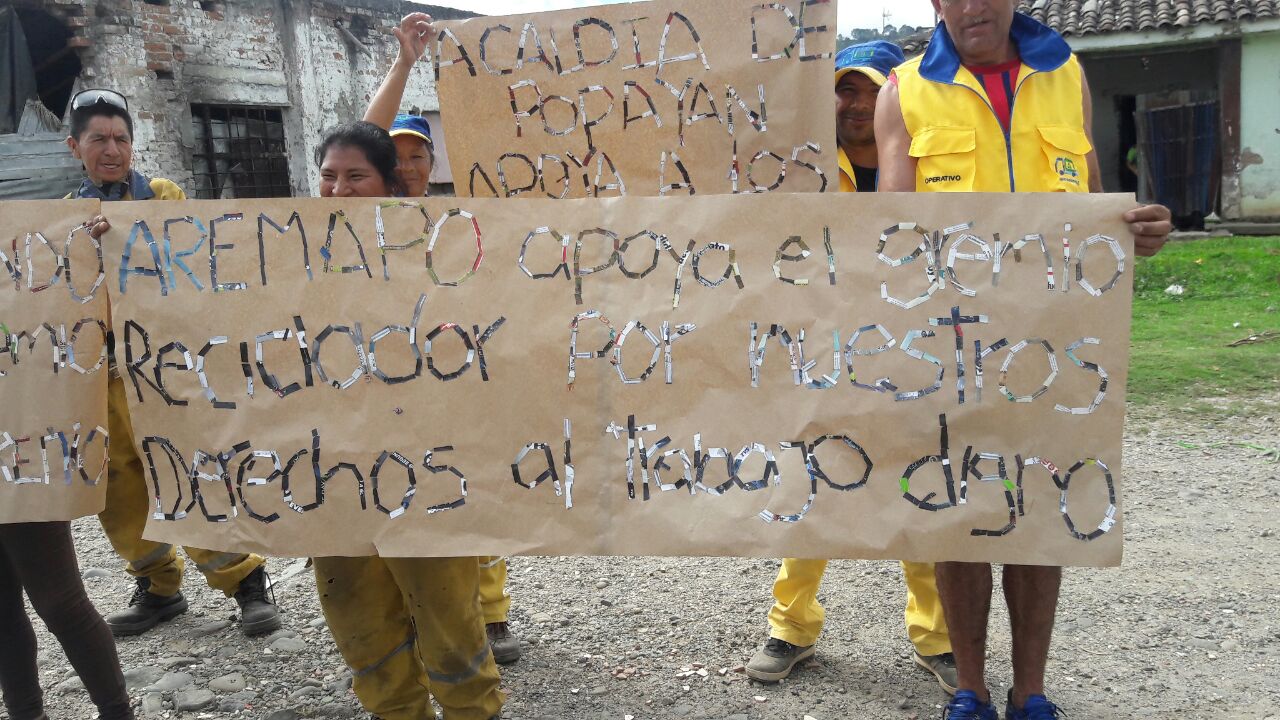 ACALDIA DE
POPAYAN
APOYA A LOS
OPERATIVO
AREMAPO apoya el gremio
Reciclador Por nuestros
Derechos al trabajo digno